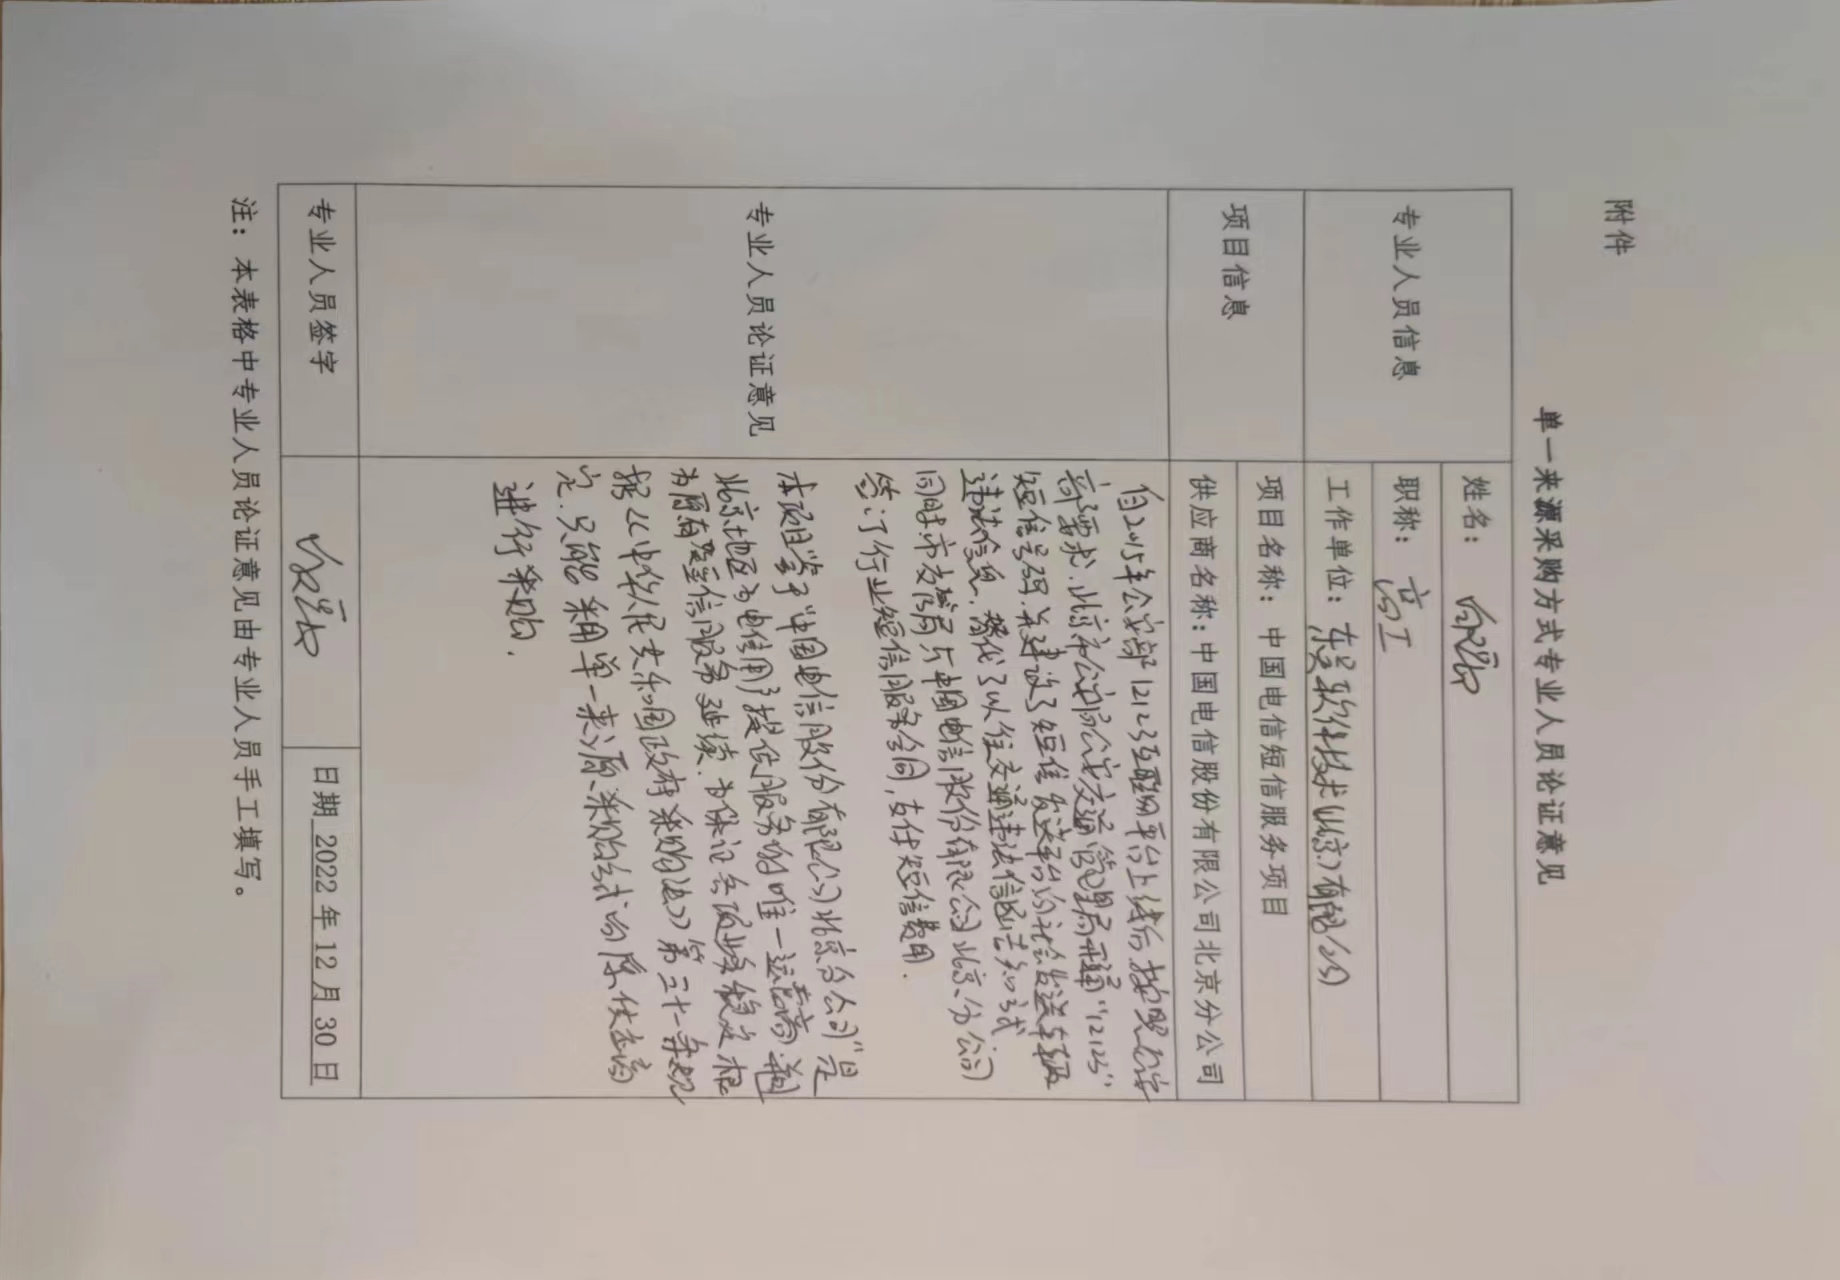 附件
单一来源采购方式专业人员论证意见
专业人员信息
姓名：
职称：高工
工作单位：东昊软件技术(北京)有限公司
项目信息
项目名称：中国电信短信服务项目
供应商名称：中国电信股份有限公司北京分公司
专业人员论证意见
自2015年公安部12123互联网平台上线后,按照公安
部要求,北京市公安局公安交通管理局开通"12123"
短信号码,并建设了短信发送平台,向社会发送车辆
违法信息,替代了以往交通违法信函告知方式.
同时,市交管局与中国电信股份有限公司北京分公司
签订了行业短信服务合同,支付短信费用.
本项目鉴于"中国电信股份有限公司北京分公司"是
北京地区为电信用户提供服务的唯一运营商,且
为原有短信服务延续.为保证各项业务稳定,根
据《中华人民共和国政府采购法》第三十一条规
定,只能采用单一来源采购方式向原供应商
进行采购.
专业人员签字
日期 2022 年 12 月 30 日
注：本表格中专业人员论证意见由专业人员手工填写。